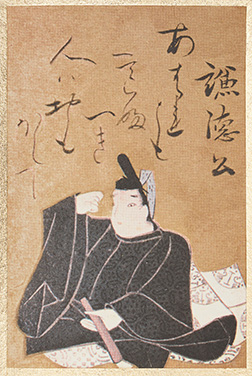 謙徳公
あはれとも
いふ
へき
人はおも
ほえて